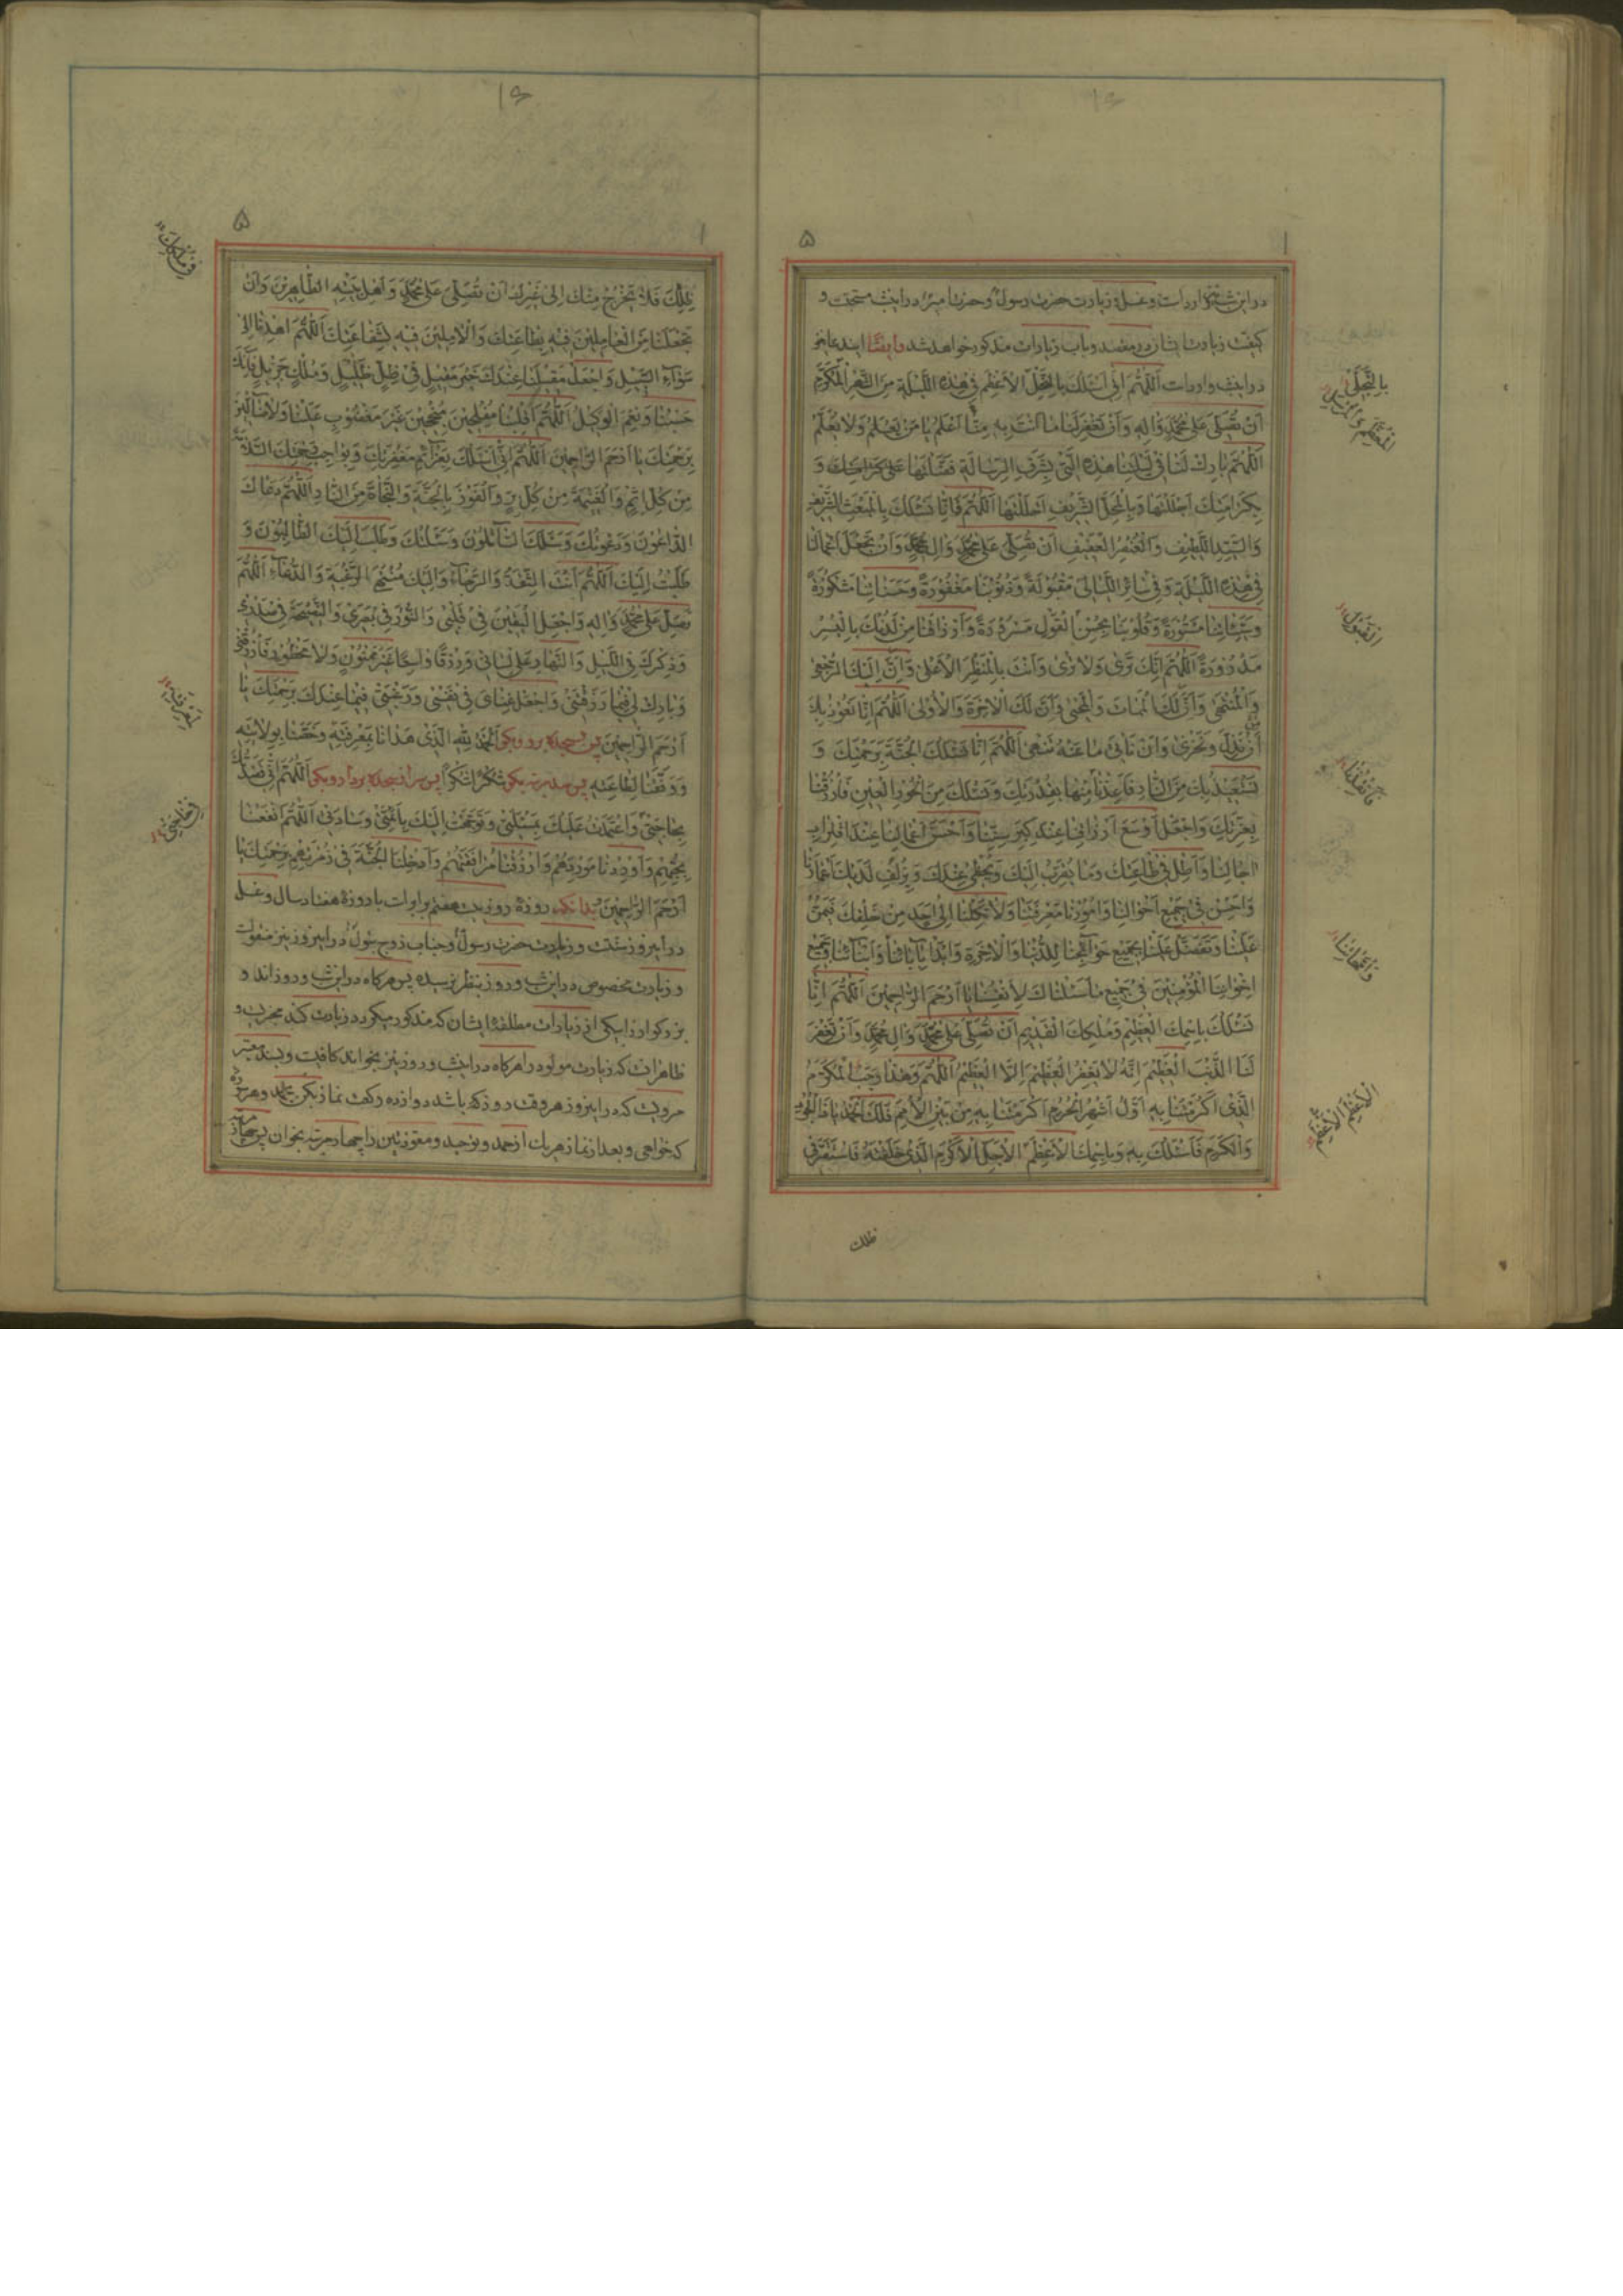 در این شب وارد است و غسل و زیارت حضرت رسول و حضرت امیر در این شب مستحبست و
کیفیت زیارت ایشان در مقصد و باب زیارات مذکور خواهد شد و ایضا این دعا نیز
در این شب وارد است اَللّٰهُمَّ اِنّی اَسْئَلُكَ بِالتَّجَلِّ الْاَعْظَمِ فی هٰذِهِ اللَّیْلَةِ مِنَ الشَّهْرِ الْمُكَرَّمِ
اَنْ تُصَلِّیَ عَلیٰ مُحَمَّدٍ وَاٰلِهِ وَاَنْ تَغْفِرَ لَنَا مَا اَنْتَ بِهِ مِنَّا اَعْلَمُ یَا مَنْ یَعْلَمُ وَلَا نَعْلَمُ
اَللّٰهُمَّ بَارِكْ لَنَا فی لَیْلَتِنَا هٰذِهِ الَّتی بِشَرَفِ الرِّسَالَةِ فَضَّلْتَهَا وَ
بِكَرَامَتِكَ اَجْلَلْتَهَا وَبِالْمَحَلِّ الشَّرِیفِ اَحْلَلْتَهَا اَللّٰهُمَّ فَاِنَّا نَسْئَلُكَ بِالْمَبْعَثِ الشَّرِیفِ
وَالسَّیِّدِ اللَّطِیفِ وَالْعُنْصُرِ الْعَفِیفِ اَنْ تُصَلِّیَ عَلیٰ مُحَمَّدٍ وَاٰلِ مُحَمَّدٍ وَاَنْ تَجْعَلَ اَعْمَالَنَا
فی هٰذِهِ اللَّیْلَةِ وَفی سَائِرِ اللَّیَالی مَقْبُولَةً وَذُنُوبَنَا مَغْفُورَةً وَحَسَنَاتِنَا مَشْكُورَةً
وَسَیِّئَاتِنَا مَسْتُورَةً وَقُلُوبَنَا بِحُسْنِ الْقَوْلِ مَسْرُورَةً وَاَرْزَاقَنَا مِنْ لَدُنْكَ بِالْیُسْرِ
مَدْرُورَةً اَللّٰهُمَّ اِنَّكَ تَریٰ وَلَا تُریٰ وَاَنْتَ بِالْمَنْظَرِ الْاَعْلیٰ وَاِنَّ اِلَیْكَ الرُّجْعیٰ
وَالْمُنْتَهیٰ وَاِنَّ لَكَ الْمَمَاتَ وَالْمَحْیٰ وَاِنَّ لَكَ الْاٰخِرَةَ وَالْاُولیٰ اَللّٰهُمَّ اِنَّا نَعُوذُ بِكَ
اَنْ نَذِلَّ وَنَخْزیٰ وَاَنْ نَأْتِیَ مَا عَنْهُ تَنْهیٰ اَللّٰهُمَّ اِنَّا نَسْئَلُكَ الْجَنَّةَ بِرَحْمَتِكَ وَ
نَسْتَعِیذُ بِكَ مِنَ النَّارِ فَاَعِذْنَا مِنْهَا بِقُدْرَتِكَ وَنَسْئَلُكَ مِنَ الْحُورِ الْعِینِ فَارْزُقْنَا
بِعِزَّتِكَ وَاجْعَلْ اَوْسَعَ اَرْزَاقِنَا عِنْدَ كِبَرِ سِنِّنَا وَاَحْسَنَ اَعْمَالِنَا عِنْدَ اقْتِرَابِ
اٰجَالِنَا وَاَطِلْ فی طَاعَتِكَ وَمَا یُقَرِّبُ اِلَیْكَ وَیُحْظی عِنْدَكَ وَیُزْلِفُ لَدَیْكَ اَعْمَارَنَا
وَاَحْسِنْ فی جَمِیعِ اَحْوَالِنَا وَاُمُورِنَا مَعْرِفَتَنَا وَلَا تَكِلْنَا اِلیٰ اَحَدٍ مِنْ خَلْقِكَ فَیَمُنَّ
عَلَیْنَا وَتَفَضَّلْ عَلَیْنَا بِجَمِیعِ حَوَائِجِنَا لِلدُّنْیَا وَالْاٰخِرَةِ وَابْدَأْ بِاٰبَائِنَا وَاَبْنَائِنَا وَجَمِیعِ
اِخْوَانِنَا الْمُؤْمِنِینَ فی جَمِیعِ مَا سَئَلْنَاكَ لِاَنْفُسِنَا یَا اَرْحَمَ الرَّاحِمِینَ اَللّٰهُمَّ اِنَّا
نَسْئَلُكَ بِاسْمِكَ الْعَظِیمِ وَمُلْكِكَ الْقَدِیمِ اَنْ تُصَلِّیَ عَلیٰ مُحَمَّدٍ وَاٰلِ مُحَمَّدٍ وَاَنْ تَغْفِرَ
لَنَا الذَّنْبَ الْعَظِیمَ اِنَّهُ لَا یَغْفِرُ الْعَظِیمَ اِلَّا الْعَظِیمُ اَللّٰهُمَّ وَهٰذَا رَجَبُ الْمُكَرَّمُ
الَّذی اَكْرَمْتَنَا بِهِ اَوَّلُ اَشْهُرِ الْحُرُمِ اَكْرَمْتَنَا بِهِ مِنْ بَیْنِ الْاُمَمِ فَلَكَ الْحَمْدُ یَا ذَا الْجُودِ
وَالْكَرَمِ فَاَسْئَلُكَ بِهِ وَبِاسْمِكَ الْاَعْظَمِ الْاَجَلِّ الْاَكْرَمِ الَّذی خَلَقْتَهُ فَاسْتَقَرَّ فی
ظلك
ظِلِّكَ فَلَا یَخْرُجُ مِنْكَ اِلیٰ غَیْرِكَ اَنْ تُصَلِّیَ عَلیٰ مُحَمَّدٍ وَاَهْلِ بَیْتِهِ الطَّاهِرِینَ وَاَنْ
تَجْعَلَنَا مِنَ الْعَامِلِینَ فِیهِ بِطَاعَتِكَ وَالْاٰمِلِینَ فِیهِ لِشَفَاعَتِكَ اَللّٰهُمَّ اهْدِنَا اِلیٰ
سَوَاءِ السَّبِیلِ وَاجْعَلْ مَقِیلَنَا عِنْدَكَ خَیْرَ مَقِیلٍ فی ظِلٍّ ظَلِیلٍ وَمُلْكٍ جَزِیلٍ فَاِنَّكَ
حَسْبُنَا وَنِعْمَ الْوَكِیلُ اَللّٰهُمَّ اقْلِبْنَا مُفْلِحِینَ مُنْجِحِینَ غَیْرَ مَغْضُوبٍ عَلَیْنَا وَلَا ضَالِّینَ
بِرَحْمَتِكَ یَا اَرْحَمَ الرَّاحِمِینَ اَللّٰهُمَّ اِنّی اَسْئَلُكَ بِعَزَائِمِ مَغْفِرَتِكَ وَبِوَاجِبِ رَحْمَتِكَ السَّلَامَةَ
مِنْ كُلِّ اِثْمٍ وَالْغَنِیمَةَ مِنْ كُلِّ بِرٍّ وَالْفَوْزَ بِالْجَنَّةِ وَالنَّجَاةَ مِنَ النَّارِ اَللّٰهُمَّ دَعَاكَ
الدَّاعُونَ وَدَعَوْتُكَ وَسَئَلَكَ السَّائِلُونَ وَسَئَلْتُكَ وَطَلَبَ اِلَیْكَ الطَّالِبُونَ وَ
طَلَبْتُ اِلَیْكَ اَللّٰهُمَّ اَنْتَ الثِّقَةُ وَالرَّجَاءُ وَاِلَیْكَ مُنْتَهَی الرَّغْبَةِ وَالدُّعَاءِ اَللّٰهُمَّ
فَصَلِّ عَلیٰ مُحَمَّدٍ وَاٰلِهِ وَاجْعَلِ الْیَقِینَ فی قَلْبی وَالنُّورَ فی بَصَری وَالنَّصِیحَةَ فی صَدْری
وَذِكْرَكَ فِی اللَّیْلِ وَالنَّهَارِ عَلیٰ لِسَانی وَرِزْقًا وَاسِعًا غَیْرَ مَمْنُونٍ وَلَا مَحْظُورٍ فَارْزُقْنی
وَبَارِكْ لی فِیمَا رَزَقْتَنی وَاجْعَلْ غِنَایَ فی نَفْسی وَرَغْبَتی فِیمَا عِنْدَكَ بِرَحْمَتِكَ یَا
اَرْحَمَ الرَّاحِمِینَ پس بسجده برو و بگو اَلْحَمْدُ لِلّٰهِ الَّذی هَدَانَا لِمَعْرِفَتِهِ وَخَصَّنَا بِوِلَایَتِهِ
وَوَفَّقَنَا لِطَاعَتِهِ پس صد مرتبه بگو شُكْرًا شُكْرًا پس سر از سجده بردار و بگو اَللّٰهُمَّ اِنّی قَصَدْتُكَ
بِحَاجَتی وَاعْتَمَدْتُ عَلَیْكَ بِمَسْئَلَتی وَتَوَجَّهْتُ اِلَیْكَ بِاَئِمَّتی وَسَادَتی اَللّٰهُمَّ انْفَعْنَا
بِحُبِّهِمْ وَاَوْرِدْنَا مَوْرِدَهُمْ وَارْزُقْنَا مُرَافَقَتَهُمْ وَاَدْخِلْنَا الْجَنَّةَ فی زُمْرَتِهِمْ بِرَحْمَتِكَ یَا
اَرْحَمَ الرَّاحِمِینَ بدانکه روزهٔ روز بیست هفتم برابر است با روزهٔ هفتاد سال و غسل
در این روز سنّت و زیارت حضرت رسول و جناب زوج بتول در این روز نیز منقولست
و زیارت مخصوص در این شب و روز بنظر نرسیده پس هر کاه در این شب و روز اند و
بزرکوار را بیکی از زیارات مطلقهٔ ایشان که مذکور میکردد زیارت کند بهتر است و
ظاهرا آنکه زیارت مولود را هر کاه در این شب و روز نیز بخواند کافیست و بسند معتبر
مرویست که در این روز هر وقت روز که باشد دوازده رکعت نماز بکن بحمد و هر سوره
که خواهی و بعد از نماز هر یک از حمد و توحید و معوذتین را چهار مرتبه بخوان پس چهار